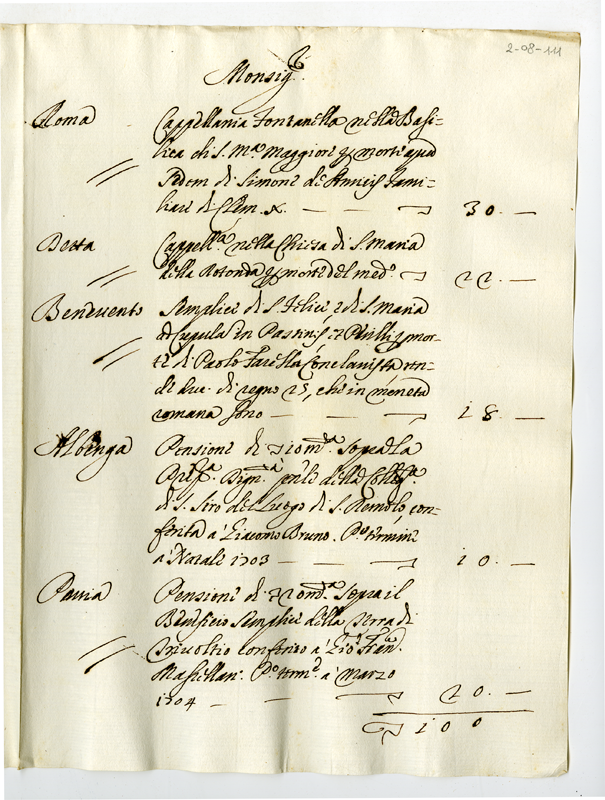 2-08-111
Monsig.r
Roma Cappellania Fontanella nella Basi=
lica di S. M.a Maggiore morte apud
Sedem di Simone de fami=
liare di Clem. X. — — 30. —
Detta Capp.a nella Chiesa di S. Maria
della Rotonda morte del med.o 22. —
Benevento Semplice di S. Felice e di S. Maria
a Cupula in mor=
te di Paolo Farella Conclavista
di duc. di regno 25, che in moneta
romana sono — — — 18. —
Albenga Pensione di 10 m.da sopra la
Pref.a Dign.tà della Colleg.ta
di S. Siro del Luogo di S. Remolo, con=
ferita à Giacomo Bruno. P.o termine
à Natale 1703 — — — 10. —
Pavia Pensione di 20 m.da sopra il
Beneficio Semplice della Terra di
Trivoltio conferito à Gio: Fran.
P.o term.e à Marzo
1704 — — — 20. —
100